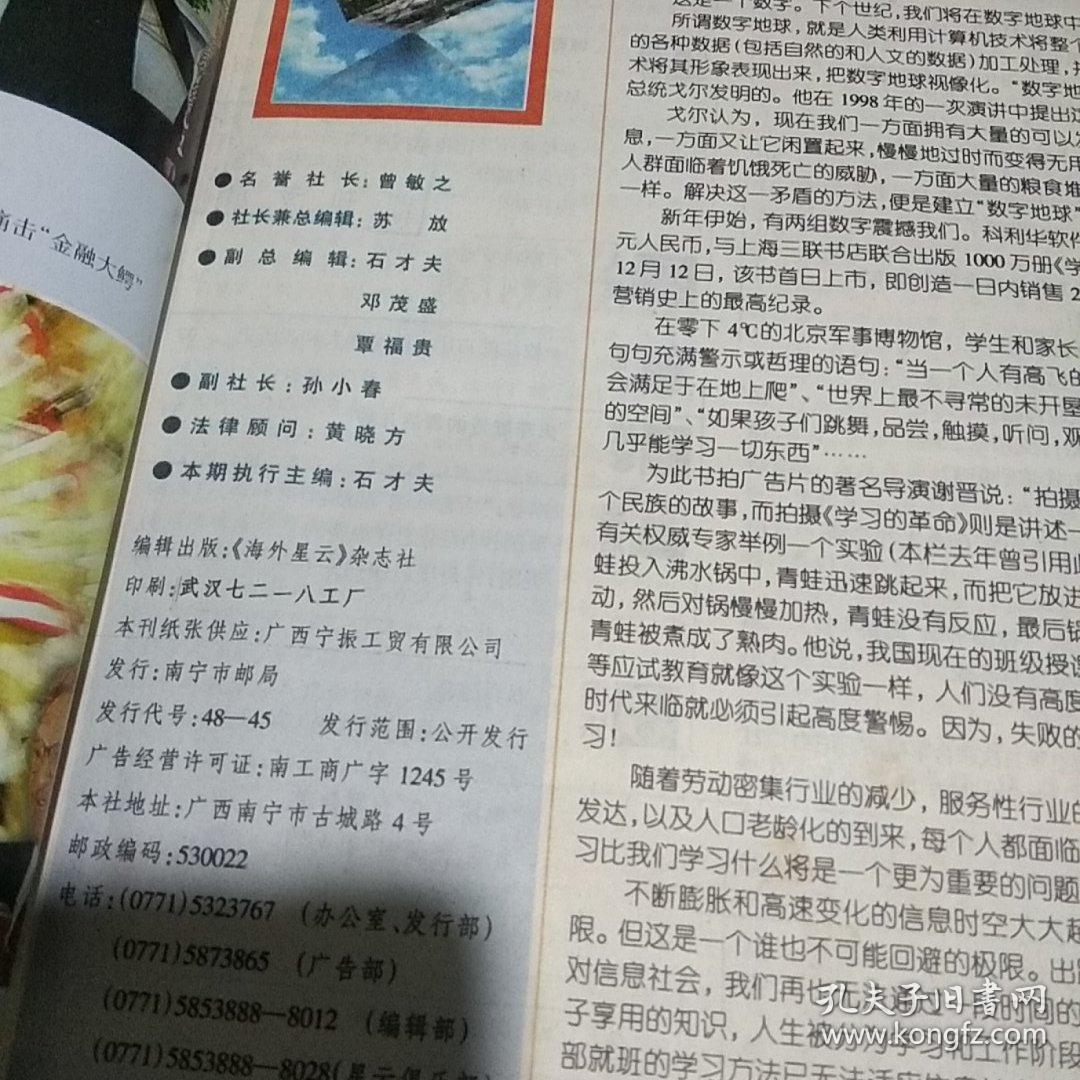 痛击“金融大鳄”
●名誉社长：曾敏之
●社长兼总编辑：苏 放
●副总编辑：石才夫
邓茂盛
覃福贵
●副社长：孙小春
●法律顾问：黄晓方
●本期执行主编：石才夫
编辑出版：《海外星云》杂志社
印刷：武汉七二一八工厂
本刊纸张供应：广西宁振工贸有限公司
发行：南宁市邮局
发行代号：48—45 发行范围：公开发行
广告经营许可证：南工商广字 1245 号
本社地址：广西南宁市古城路 4 号
邮政编码：530022
电话：(0771)5323767 (办公室、发行部)
(0771)5873865 (广告部)
(0771)5853888—8012 (编辑部)
(0771)5853888—8028(星云俱乐部)
这是一个数字。下个世纪，我们将在数字地球中
所谓数字地球，就是人类利用计算机技术将整个
的各种数据(包括自然的和人文的数据)加工处理，
术将其形象表现出来，把数字地球视像化。“数字地
总统戈尔发明的。他在 1998 年的一次演讲中提出
戈尔认为，现在我们一方面拥有大量的可以
息，一方面又让它闲置起来，慢慢地过时而变得无用
人群面临着饥饿死亡的威胁，一方面大量的粮食堆
一样。解决这一矛盾的方法，便是建立“数字地球”
新年伊始，有两组数字震撼我们。科利华软件
元人民币，与上海三联书店联合出版 1000 万册《学
12月12日，该书首日上市，即创造一日内销售 2
营销史上的最高纪录。
在零下 4℃的北京军事博物馆，学生和家长
句句充满警示或哲理的语句：“当一个人有高飞的
会满足于在地上爬”、“世界上最不寻常的未开垦
的空间”、“如果孩子们跳舞，品尝，触摸，听问，观
几乎能学习一切东西”……
为此书拍广告片的著名导演谢晋说：“拍摄
个民族的故事，而拍摄《学习的革命》则是讲述一
有关权威专家举例一个实验(本栏去年曾引用此
蛙投入沸水锅中，青蛙迅速跳起来，而把它放进
动，然后对锅慢慢加热，青蛙没有反应，最后锅
青蛙被煮成了熟肉。他说，我国现在的班级授课
等应试教育就像这个实验一样，人们没有高度
时代来临就必须引起高度警惕。因为，失败的
习！
随着劳动密集行业的减少，服务性行业的
发达，以及人口老龄化的到来，每个人都面临
习比我们学习什么将是一个更为重要的问题
不断膨胀和高速变化的信息时空大大超
限。但这是一个谁也不可能回避的极限。出
对信息社会，我们再也无法通过一段时间的
子享用的知识，人生被分为学习和工作阶段
部就班的学习方法已无法适应
孔夫子旧书网
www.kongfz.com